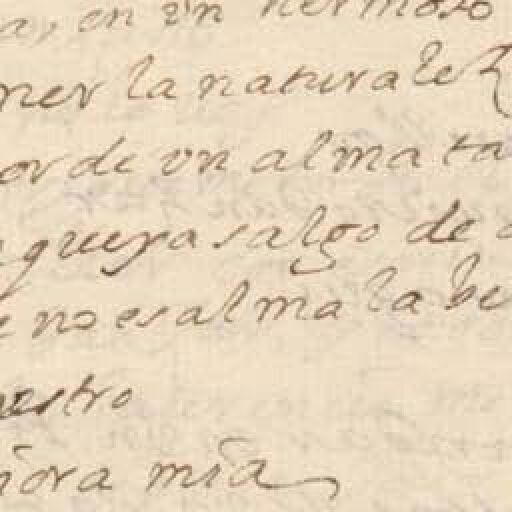 a, en vn hermoso
ner la naturalez
or de vn alma ta
quexa salgo de
e no es alma la be
estro
ñora mia